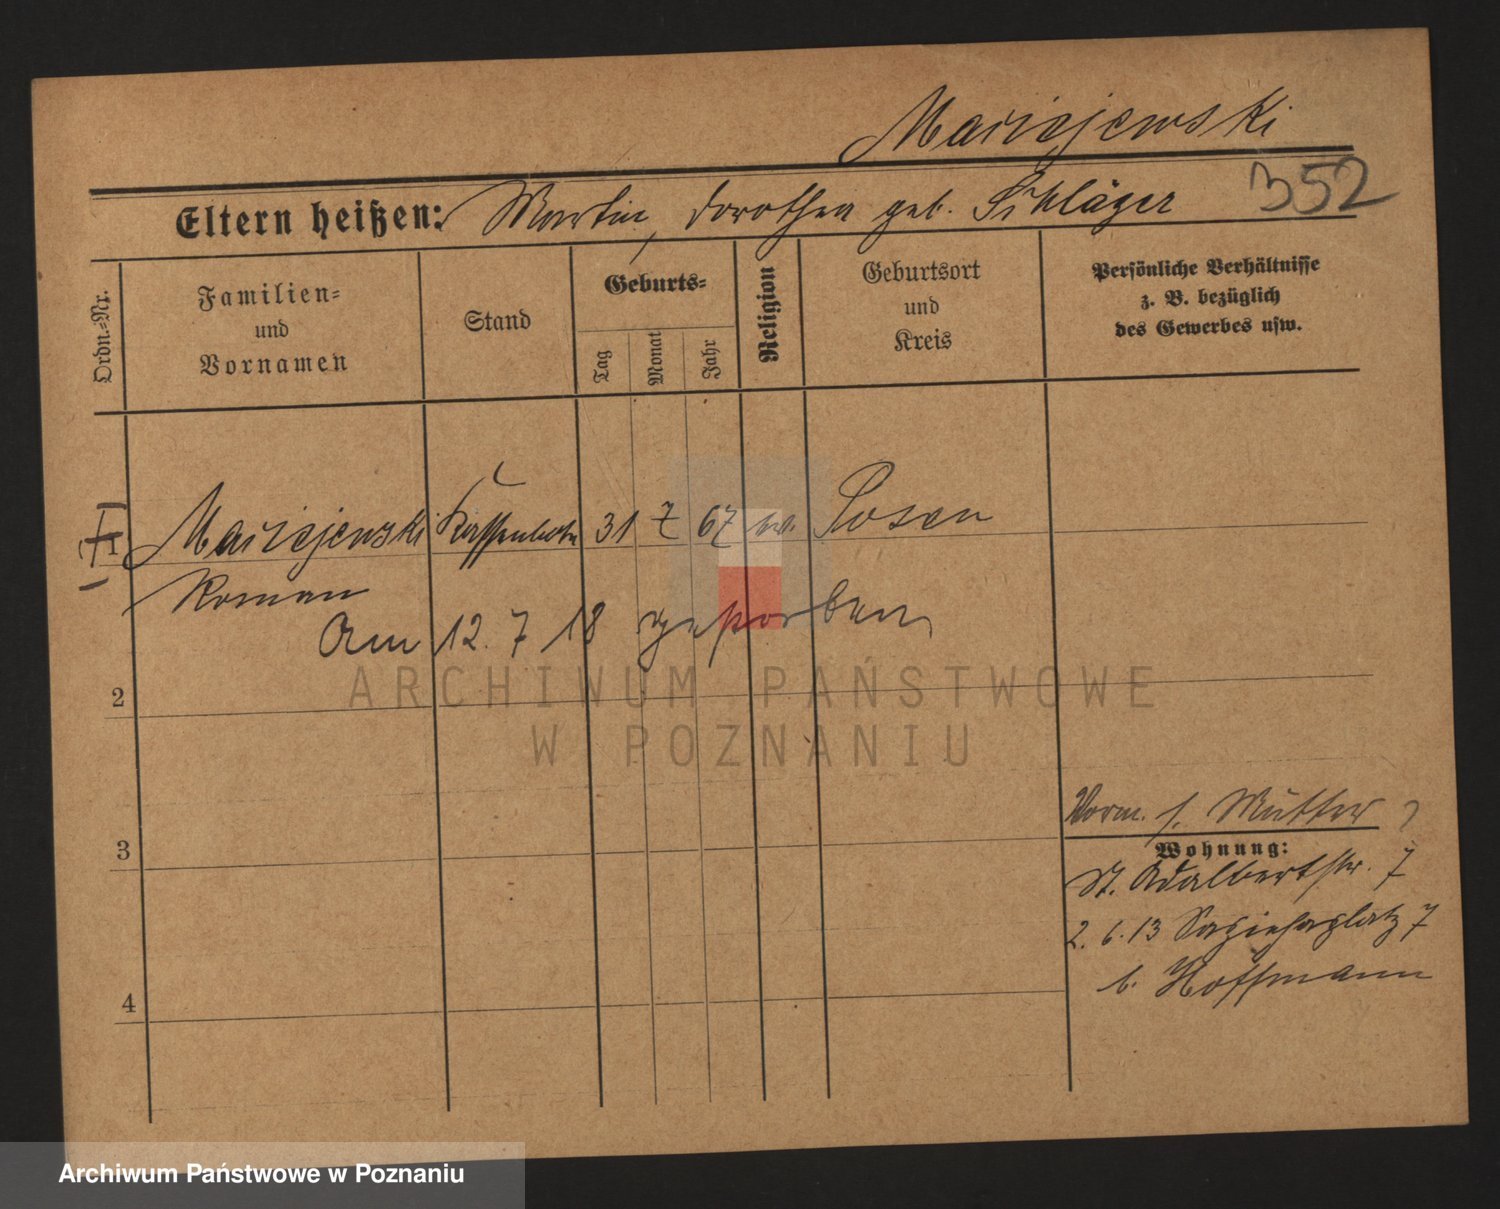 Maciejewski
352
Eltern heißen: Martin, Dorothea geb. Schläger
Ordn.-Nr.
Familien-
und
Vornamen
Stand
Geburts-
Tag
Monat
Jahr
Religion
Geburtsort
und
Kreis
Persönliche Verhältnisse
z. B. bezüglich
des Gewerbes usw.
1 Maciejewski Kassenbote 31 7 67 Posen
Roman
Am 12. 7 18 gestorben
2
3
4
Vorm. s. Mutter
Wohnung:
St. Adalbertstr. 7
2. 6. 13 Sapiehaplatz 7
b. Hoffmann
ARCHIWUM PAŃSTWOWE
W POZNANIU
Archiwum Państwowe w Poznaniu